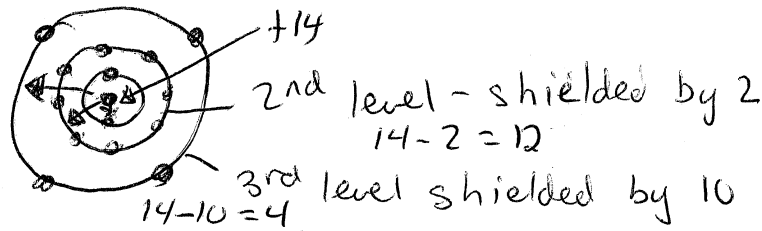 +14
2nd level - shielded by 2
14 - 2 = 12
3rd level shielded by 10
14-10 = 4